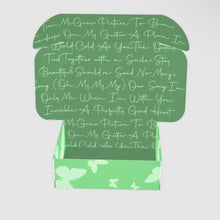 Tim McGraw Picture To Burn
Teardrops On My Guitar A Place In
World Cold As You The
Tied Together with a Smile Stay
Beautiful Should've Said No Mary's
Song (Oh My My My) Our Song I'm
Only Me When I'm With You
Invisible A Perfectly Good Heart
Tim McGraw Picture To Burn
On My Guitar A Place
World Cold As You The